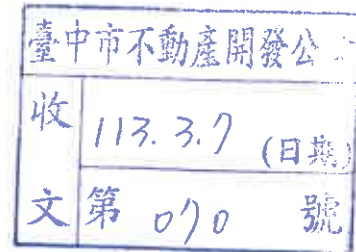 臺中市不動產開發公
收
113.3.7 (日期)
文
第 070 號